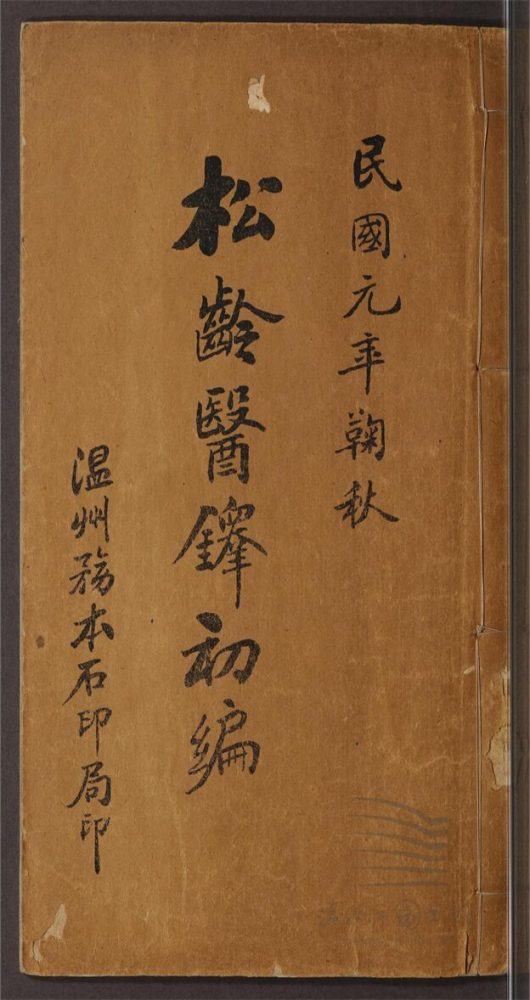 民國元年鞠秋
松齡醫鐸初編
温州務本石印局印